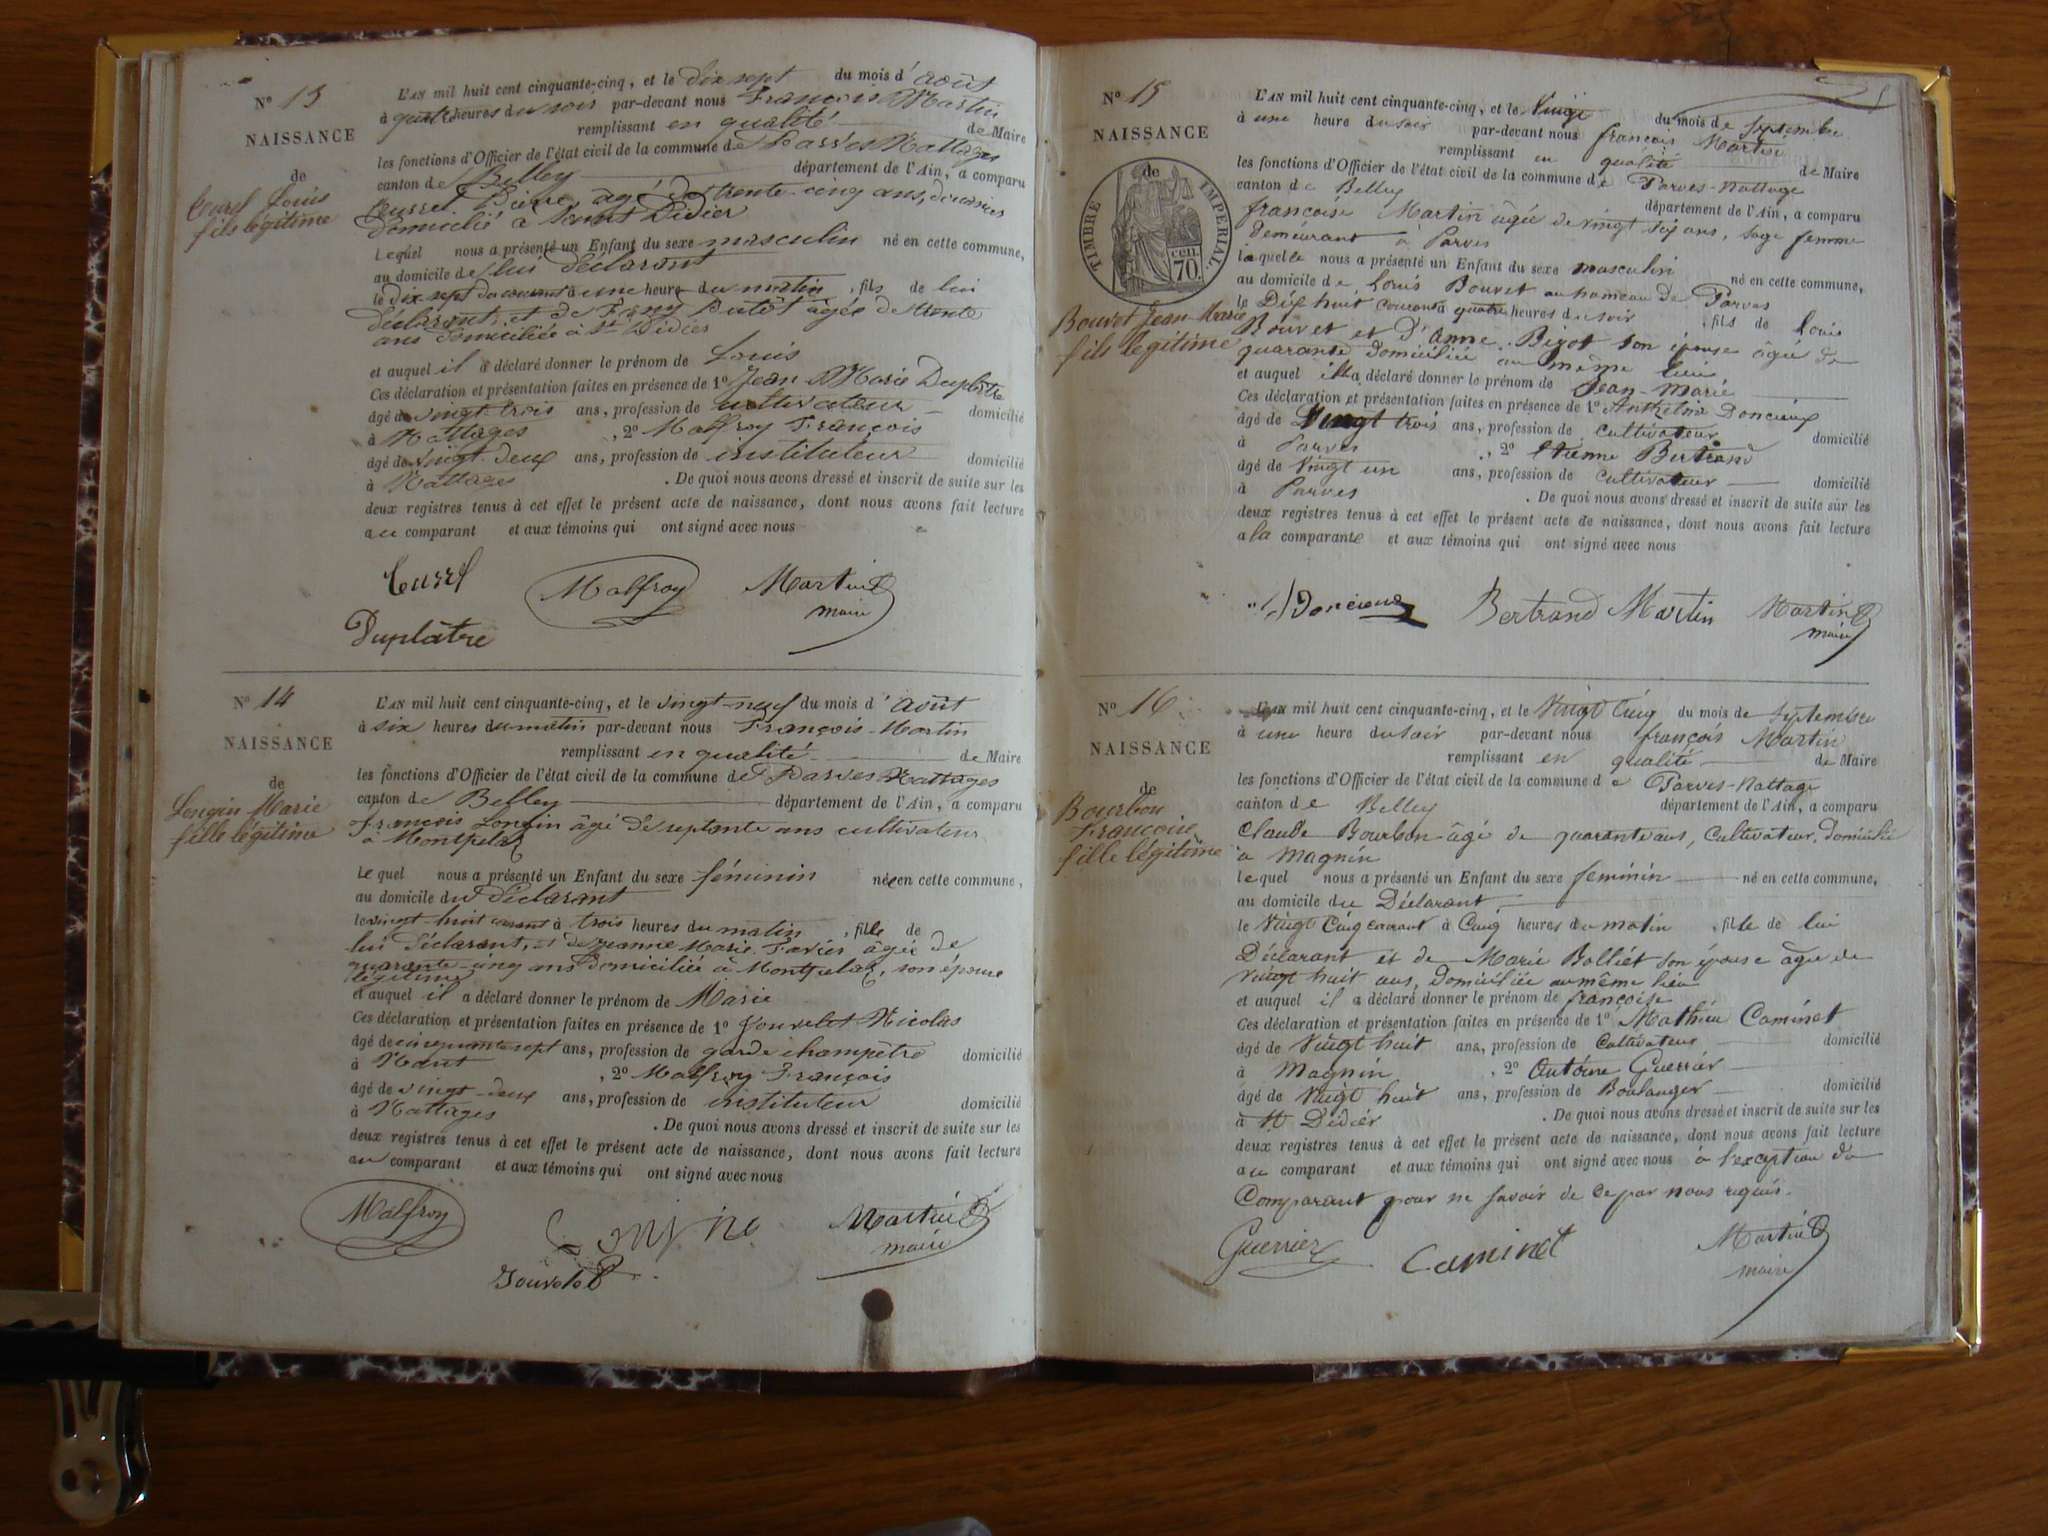 N° 13
NAISSANCE
de
Louis
fils légitime
L'AN mil huit cent cinquante-cinq, et le dix sept du mois d'août
à quatre heures du soir par-devant nous François Martin
remplissant en qualité de Maire
les fonctions d'Officier de l'état civil de la commune de Parves Nattages
canton de Belley département de l'Ain, a comparu
Pierre, âgé de trente-cinq ans,
domicilié à Saint Didier
Lequel nous a présenté un Enfant du sexe masculin né en cette commune,
au domicile de lui déclarant
le dix sept du courant à une heure du matin, fils de lui
déclarant, et de âgée de trente
ans domiciliée à St Didier
et auquel il a déclaré donner le prénom de Louis
Ces déclaration et présentation faites en présence de 1° Jean Marie Duplâtre
âgé de vingt trois ans, profession de cultivateur domicilié
à Nattages, 2° Malfroy François
âgé de vingt deux ans, profession de instituteur domicilié
à Nattages. De quoi nous avons dressé et inscrit de suite sur les
deux registres tenus à cet effet le présent acte de naissance, dont nous avons fait lecture
au comparant et aux témoins qui ont signé avec nous
Malfroy Martin
maire
Duplâtre
N° 14
NAISSANCE
de
Longin Marie
fille légitime
L'AN mil huit cent cinquante-cinq, et le vingt-neuf du mois d'août
à six heures du matin par-devant nous François Martin
remplissant en qualité de Maire
les fonctions d'Officier de l'état civil de la commune de Parves Nattages
canton de Belley département de l'Ain, a comparu
François Longin âgé de septante ans cultivateur
à Montpelaz
Lequel nous a présenté un Enfant du sexe féminin née en cette commune,
au domicile du déclarant
le vingt-huit courant à trois heures du matin, fille de
lui déclarant, et de Jeanne Marie Favier âgée de
quarante-cinq ans domiciliée à Montpelaz, son épouse
légitime
et auquel il a déclaré donner le prénom de Marie
Ces déclaration et présentation faites en présence de 1° Jouvelet Nicolas
âgé de cinquante sept ans, profession de garde champêtre domicilié
à Nant, 2° Malfroy François
âgé de vingt-deux ans, profession de instituteur domicilié
à Nattages. De quoi nous avons dressé et inscrit de suite sur les
deux registres tenus à cet effet le présent acte de naissance, dont nous avons fait lecture
au comparant et aux témoins qui ont signé avec nous
Malfroy Martin
maire
Jouvelet
N° 15
NAISSANCE
de
TIMBRE IMPERIAL
70 cen.
Bouvet Jean-Marie
fils légitime
L'AN mil huit cent cinquante-cinq, et le Vingt du mois de Septembre
à une heure du soir par-devant nous françois Martin
remplissant en qualité de Maire
les fonctions d'Officier de l'état civil de la commune de Parves-Nattage
canton de Belley département de l'Ain, a comparu
françoise Martin âgée de vingt six ans, sage femme
demeurant à Parves
Laquelle nous a présenté un Enfant du sexe masculin né en cette commune,
au domicile de Louis Bouvet au hameau de Parves
le Dix huit courant à quatre heures du soir, fils de Louis
Bouvet et D'Anne Bigot son épouse âgée de
quarante domiciliée au même lieu
et auquel elle a déclaré donner le prénom de Jean-Marie
Ces déclaration et présentation faites en présence de 1° Anthelme Doncieux
âgé de Vingt trois ans, profession de Cultivateur domicilié
à Parves, 2° Etienne Bertrand
âgé de Vingt un ans, profession de Cultivateur domicilié
à Parves. De quoi nous avons dressé et inscrit de suite sur les
deux registres tenus à cet effet le présent acte de naissance, dont nous avons fait lecture
a la comparante et aux témoins qui ont signé avec nous
Doncieux Bertrand Martin Martin
maire
N° 16
NAISSANCE
de
Bourbon
Françoise
fille légitime
L'AN mil huit cent cinquante-cinq, et le Vingt Cinq du mois de Septembre
à une heure du soir par-devant nous françois Martin
remplissant en qualité de Maire
les fonctions d'Officier de l'état civil de la commune de Parves-Nattage
canton de Belley département de l'Ain, a comparu
Claude Bourbon âgé de quarante ans, Cultivateur, Domicilié
à Magnin
lequel nous a présenté un Enfant du sexe feminin né en cette commune,
au domicile du Déclarant
le Vingt Cinq courant à Cinq heures du matin, fille de lui
Déclarant et de Marie Bolliet son épouse âgée de
Vingt huit ans, Domiciliée au même lieu
et auquel il a déclaré donner le prénom de françoise
Ces déclaration et présentation faites en présence de 1° Mathieu Caminet
âgé de Vingt huit ans, profession de Cultivateur domicilié
à Magnin, 2° Antoine Guerrier
âgé de Vingt huit ans, profession de Boulanger domicilié
à St Didier. De quoi nous avons dressé et inscrit de suite sur les
deux registres tenus à cet effet le présent acte de naissance, dont nous avons fait lecture
au comparant et aux témoins qui ont signé avec nous à l'exception du
Comparant pour ne savoir de ce par nous requis.
Guerrier Caminet Martin
maire